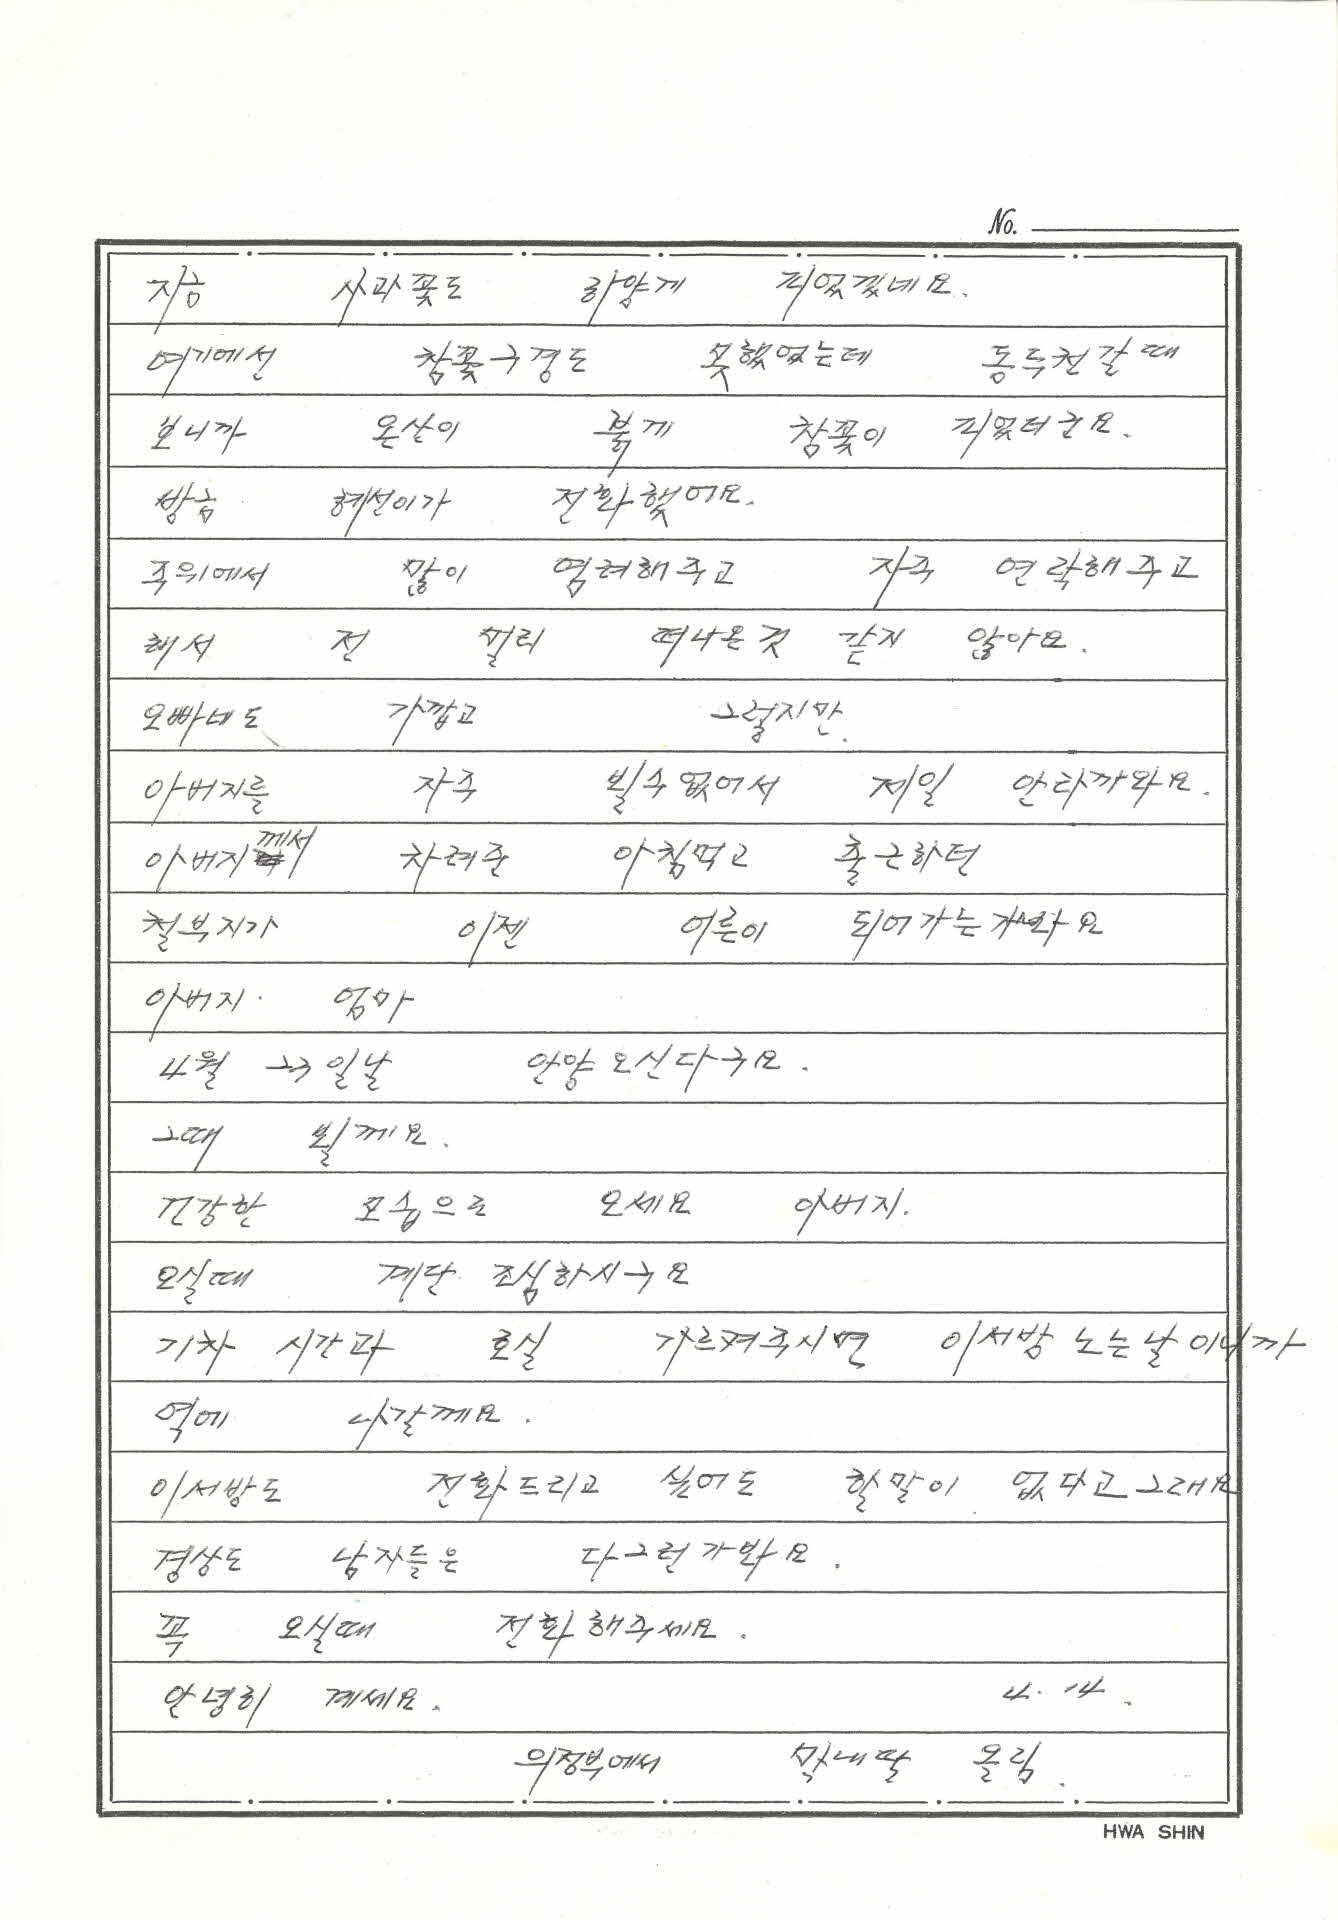 No.
지금 사과꽃도 하얗게 피었겠네요.
여기에선 참꽃구경도 못했었는데 동두천갈때
보니까 온산이 붉게 참꽃이 피었더군요.
방금 혜선이가 전화했어요.
주위에서 많이 염려해주고 자주 연락해주고
해서 전 멀리 떠나온것 같지 않아요.
오빠네도 가깝고 그렇지만.
아버지를 자주 뵐수없어서 제일 안타까와요.
아버지께서 차려준 아침먹고 출근하던
철부지가 이젠 어른이 되어가는가봐요
아버지. 엄마
4월 일날 안양오신다구요.
그때 뵐께요.
건강한 모습으로 오세요 아버지.
오실때 계단 조심하시구요
기차 시간과 호실 가르켜주시면 이서방 노는날이니까
역에 나갈께요.
이서방도 전화드리고 싶어도 할말이 없다고그래요
경상도 남자들은 다그런가봐요.
꼭 오실때 전화해주세요.
안녕히 계세요. 4. 14.
의정부에서 막내딸 올림.
HWA SHIN